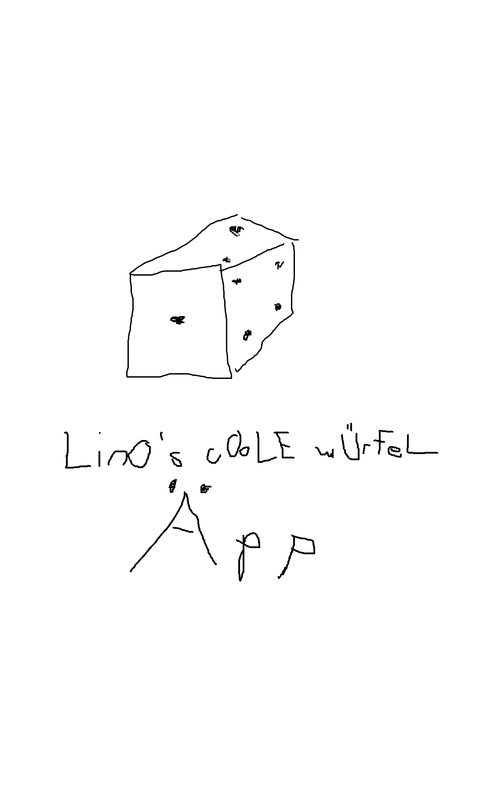 Lino's cOoLE wÜrfeL
Äpp